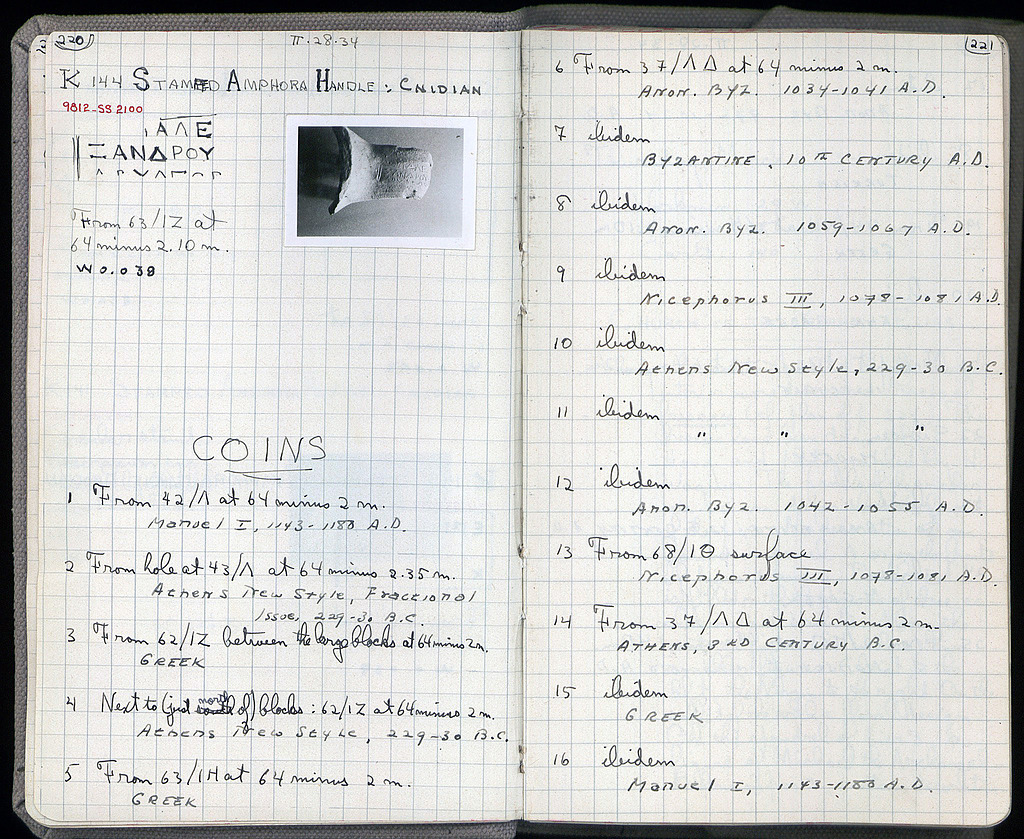 220
II·28·34
K 144 STAMPED AMPHORA HANDLE : CNIDIAN
9812-SS 2100
ΑΛΕ
ΞΑΝΔΡΟΥ
From 63/ΙΖ at
64 minus 2.10 m.
W 0.038
COINS
1 From 42/Λ at 64 minus 2 m.
Manuel I, 1143-1180 A.D.
2 From hole at 43/Λ at 64 minus 2.35 m.
Athens New Style, Fractional
Issue, 229-30 B.C.
3 From 62/ΙΖ between the large blocks at 64 minus 2 m.
GREEK
4 Next to (just north of) blocks : 62/ΙΖ at 64 minus 2 m.
Athens New Style, 229-30 B.C.
5 From 63/ΙΗ at 64 minus 2 m.
GREEK
221
6 From 37/ΛΔ at 64 minus 2 m.
Anon. Byz. 1034-1041 A.D.
7 ibidem
BYZANTINE, 10TH CENTURY A.D.
8 ibidem
Anon. Byz. 1059-1067 A.D.
9 ibidem
Nicephorus III, 1078-1081 A.D.
10 ibidem
Athens New Style, 229-30 B.C.
11 ibidem
" " "
12 ibidem
Anon. Byz. 1042-1055 A.D.
13 From 68/ΙΘ surface
Nicephorus III, 1078-1081 A.D.
14 From 37/ΛΔ at 64 minus 2 m.
ATHENS, 3RD CENTURY B.C.
15 ibidem
GREEK
16 ibidem
Manuel I, 1143-1180 A.D.